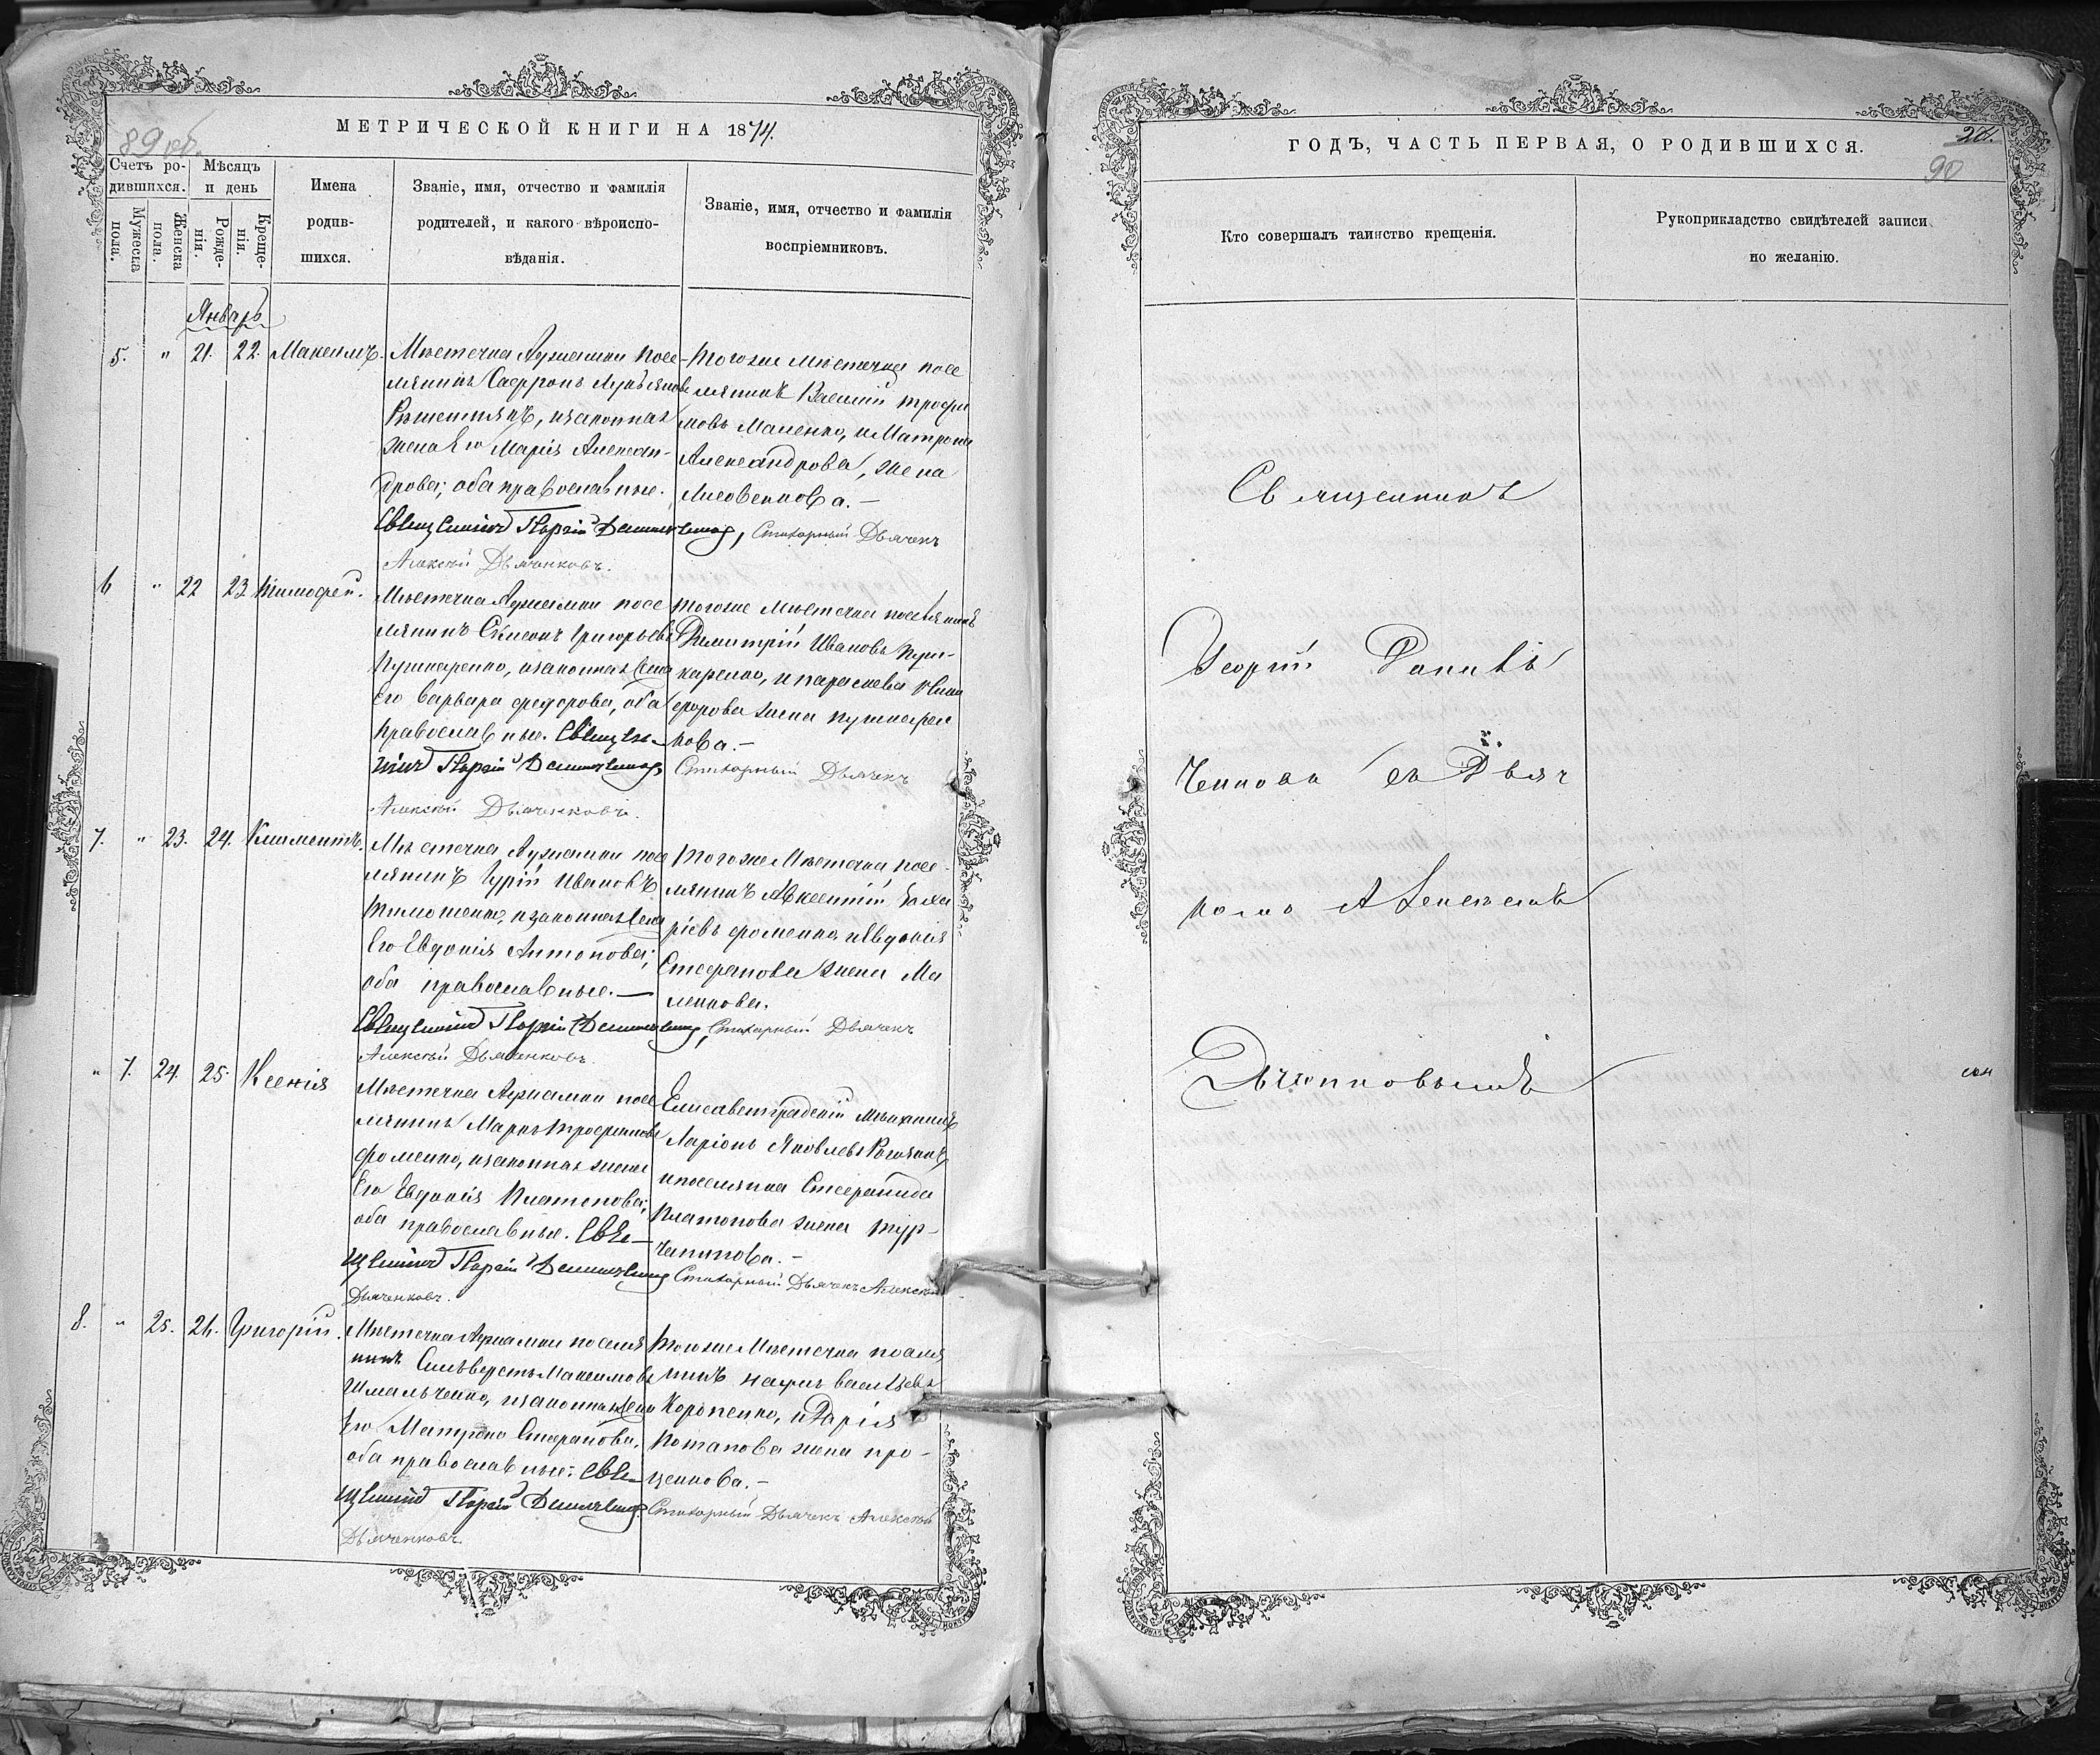 89 об.
МЕТРИЧЕСКОЙ КНИГИ НА 1874.
Счетъ ро-
дившихся.
Мѣсяцъ
и день
Мужеска
пола.
Женска
пола.
Рожде-
нія.
Креще-
нія.
Имена
родив-
шихся.
Званіе, имя, отчество и фамилія
родителей, и какого вѣроиспо-
вѣданія.
Званіе, имя, отчество и фамилія
воспріемниковъ.
Январь
5. " 21. 22. Максимъ.
Мѣстечка Аджамки посе-
лянинъ Сафронъ Лукьяновъ
изаконная
жена Его Марія Алексан-
дрова; оба православные.
Тогоже Мѣстечка посе
лянинъ Василій Трофи
мовъ Маленко, и Матрона
Александрова, жена
Лисовенкова.-
Священникъ Георгій, Стихарный Дьячекъ
Алексѣй Дьяченковъ.
6 " 22 23 Тимофей.
Мѣстечка Аджамки посе
лянинъ Сѵмеонъ Григорьевъ
Пушкаренко, изаконная жена
Его Варвара Федорова, оба
православные. Священ-
никъ Георгій
Тогоже Мѣстечка поселянинъ
Димитрій Ивановъ Пуш-
каренко, и Параскева Ники
форова жена Пушкарен
кова.-
Стихарный Дьячекъ
Алексѣй Дьяченковъ.
7. " 23. 24. Климентъ.
Мѣстечка Аджамки посе
лянинъ Гурій Ивановъ
Тимошенко, изаконная жена
Его Евдокія Антонова;
оба православные.—
Тогоже Мѣстечка посе-
лянинъ Авксентій Заха
ріевъ Фоменко, иЕвдокія
Стефанова жена Ма
ленкова.
Священникъ Георгій, Стихарный Дьячекъ
Алексѣй Дьяченковъ.
" 7. 24. 25. Ксенія
Мѣстечка Аджамки посе
лянинъ Маркъ Трофимовъ
Фоменко, изаконная жена
Его Евдокія Платонова;
оба православные. Свя-
щенникъ Георгій
Елисаветградскій мѣщанинъ
Ларіонъ Яковлевъ
ипоселянка Стефанида
Платонова жена Тур-
чанинова.-
Стихарный Дьячекъ Алексѣй
Дьяченковъ.
8. " 25. 26. Григорій.
Мѣстечка Аджамки поселя
нинъ Сильверстъ Максимовъ
Шмальченко, изаконная жена
Его Матрона Стефанова,
оба православные. Свя-
щенникъ Георгій
Тогоже Мѣстечка поселя
нинъ Васильевъ
Коропенко, иДарія
Потапова жена Про-
ценкова.-
Стихарный Дьячекъ Алексѣй
Дьяченковъ.
ГОДЪ, ЧАСТЬ ПЕРВАЯ, О РОДИВШИХСЯ.
90
Кто совершалъ таинство крещенія.
Рукоприкладство свидѣтелей записи
по желанію.
Священникъ
Георгій
съ Дьяч
комъ Алексѣемъ
Дьяченковымъ